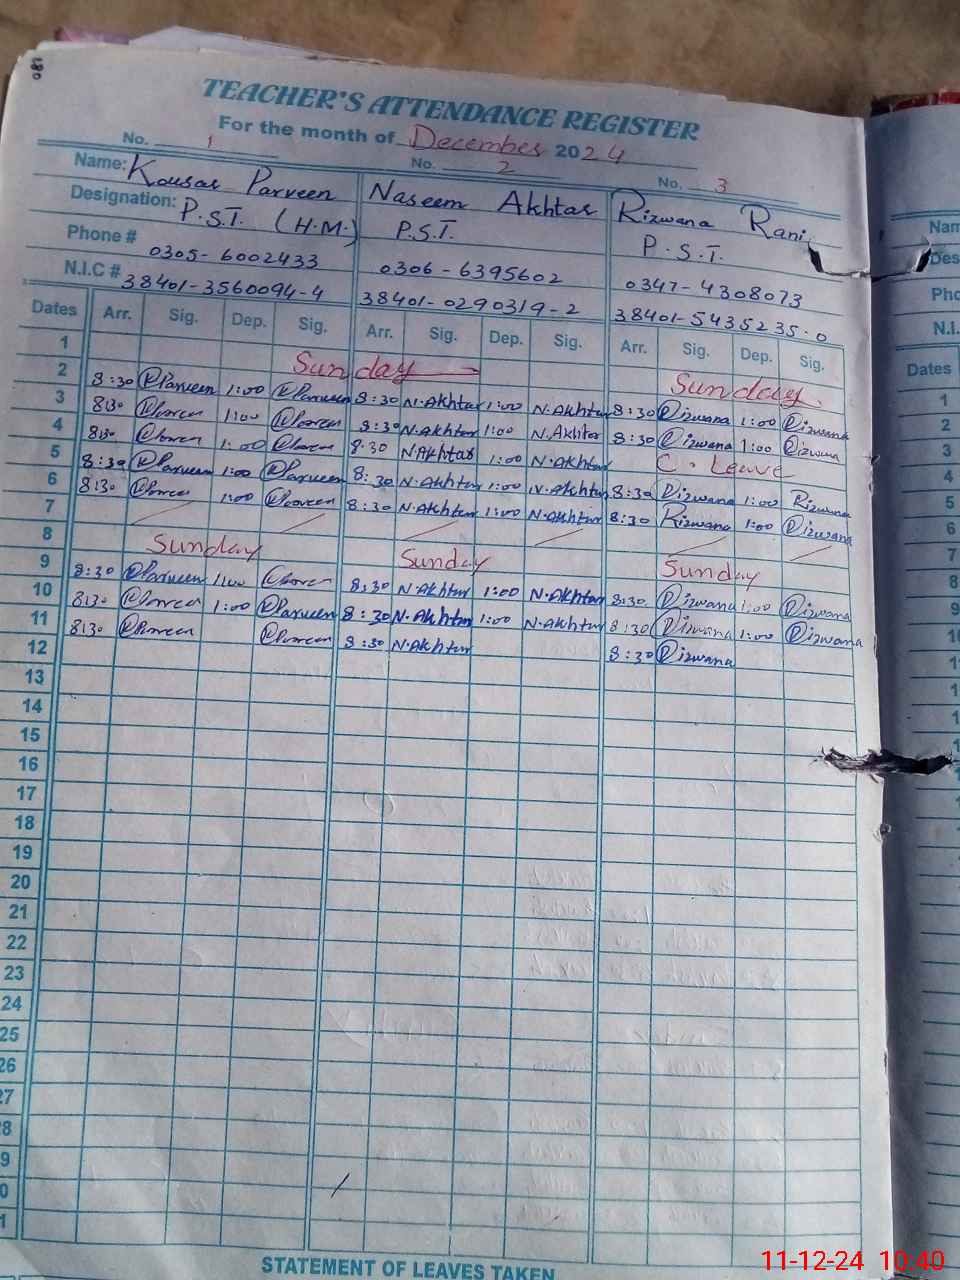 180
TEACHER'S ATTENDANCE REGISTER
For the month of December 2024
No. 1 No. 2 No. 3
Name: Kousar Parveen Naseem Akhtar Rizwana Rani
Designation: P.S.T. (H.M.) P.S.T. P.S.T.
Phone # 0305-6002433 0306-6395602 0347-4308073
N.I.C # 38401-3560094-4 38401-0290319-2 38401-5435235-0
Dates Arr. Sig. Dep. Sig. Arr. Sig. Dep. Sig. Arr. Sig. Dep. Sig.
1 Sunday Sunday
2 8:30 Parveen 1:00 Parveen 8:30 N.Akhtar 1:00 N.Akhtar 8:30 Rizwana 1:00 Rizwana
3 8:30 Parveen 1:00 Parveen 8:30 N.Akhtar 1:00 N.Akhtar 8:30 Rizwana 1:00 Rizwana
4 8:30 Parveen 1:00 Parveen 8:30 N.Akhtar 1:00 N.Akhtar C. Leave
5 8:30 Parveen 1:00 Parveen 8:30 N.Akhtar 1:00 N.Akhtar 8:30 Rizwana 1:00 Rizwana
6 8:30 Parveen 1:00 Parveen 8:30 N.Akhtar 1:00 N.Akhtar 8:30 Rizwana 1:00 Rizwana
7
8 Sunday Sunday Sunday
9 8:30 Parveen 1:00 Parveen 8:30 N.Akhtar 1:00 N.Akhtar 8:30 Rizwana 1:00 Rizwana
10 8:30 Parveen 1:00 Parveen 8:30 N.Akhtar 1:00 N.Akhtar 8:30 Rizwana 1:00 Rizwana
11 8:30 Parveen Parveen 8:30 N.Akhtar 8:30 Rizwana
12
13
14
15
16
17
18
19
20
21
22
23
24
25
26
27
8
9
0
1
STATEMENT OF LEAVES TAKEN
Nam
Des
Pho
N.I.
Dates
1
2
3
4
5
6
7
8
9
11-12-24 10:40